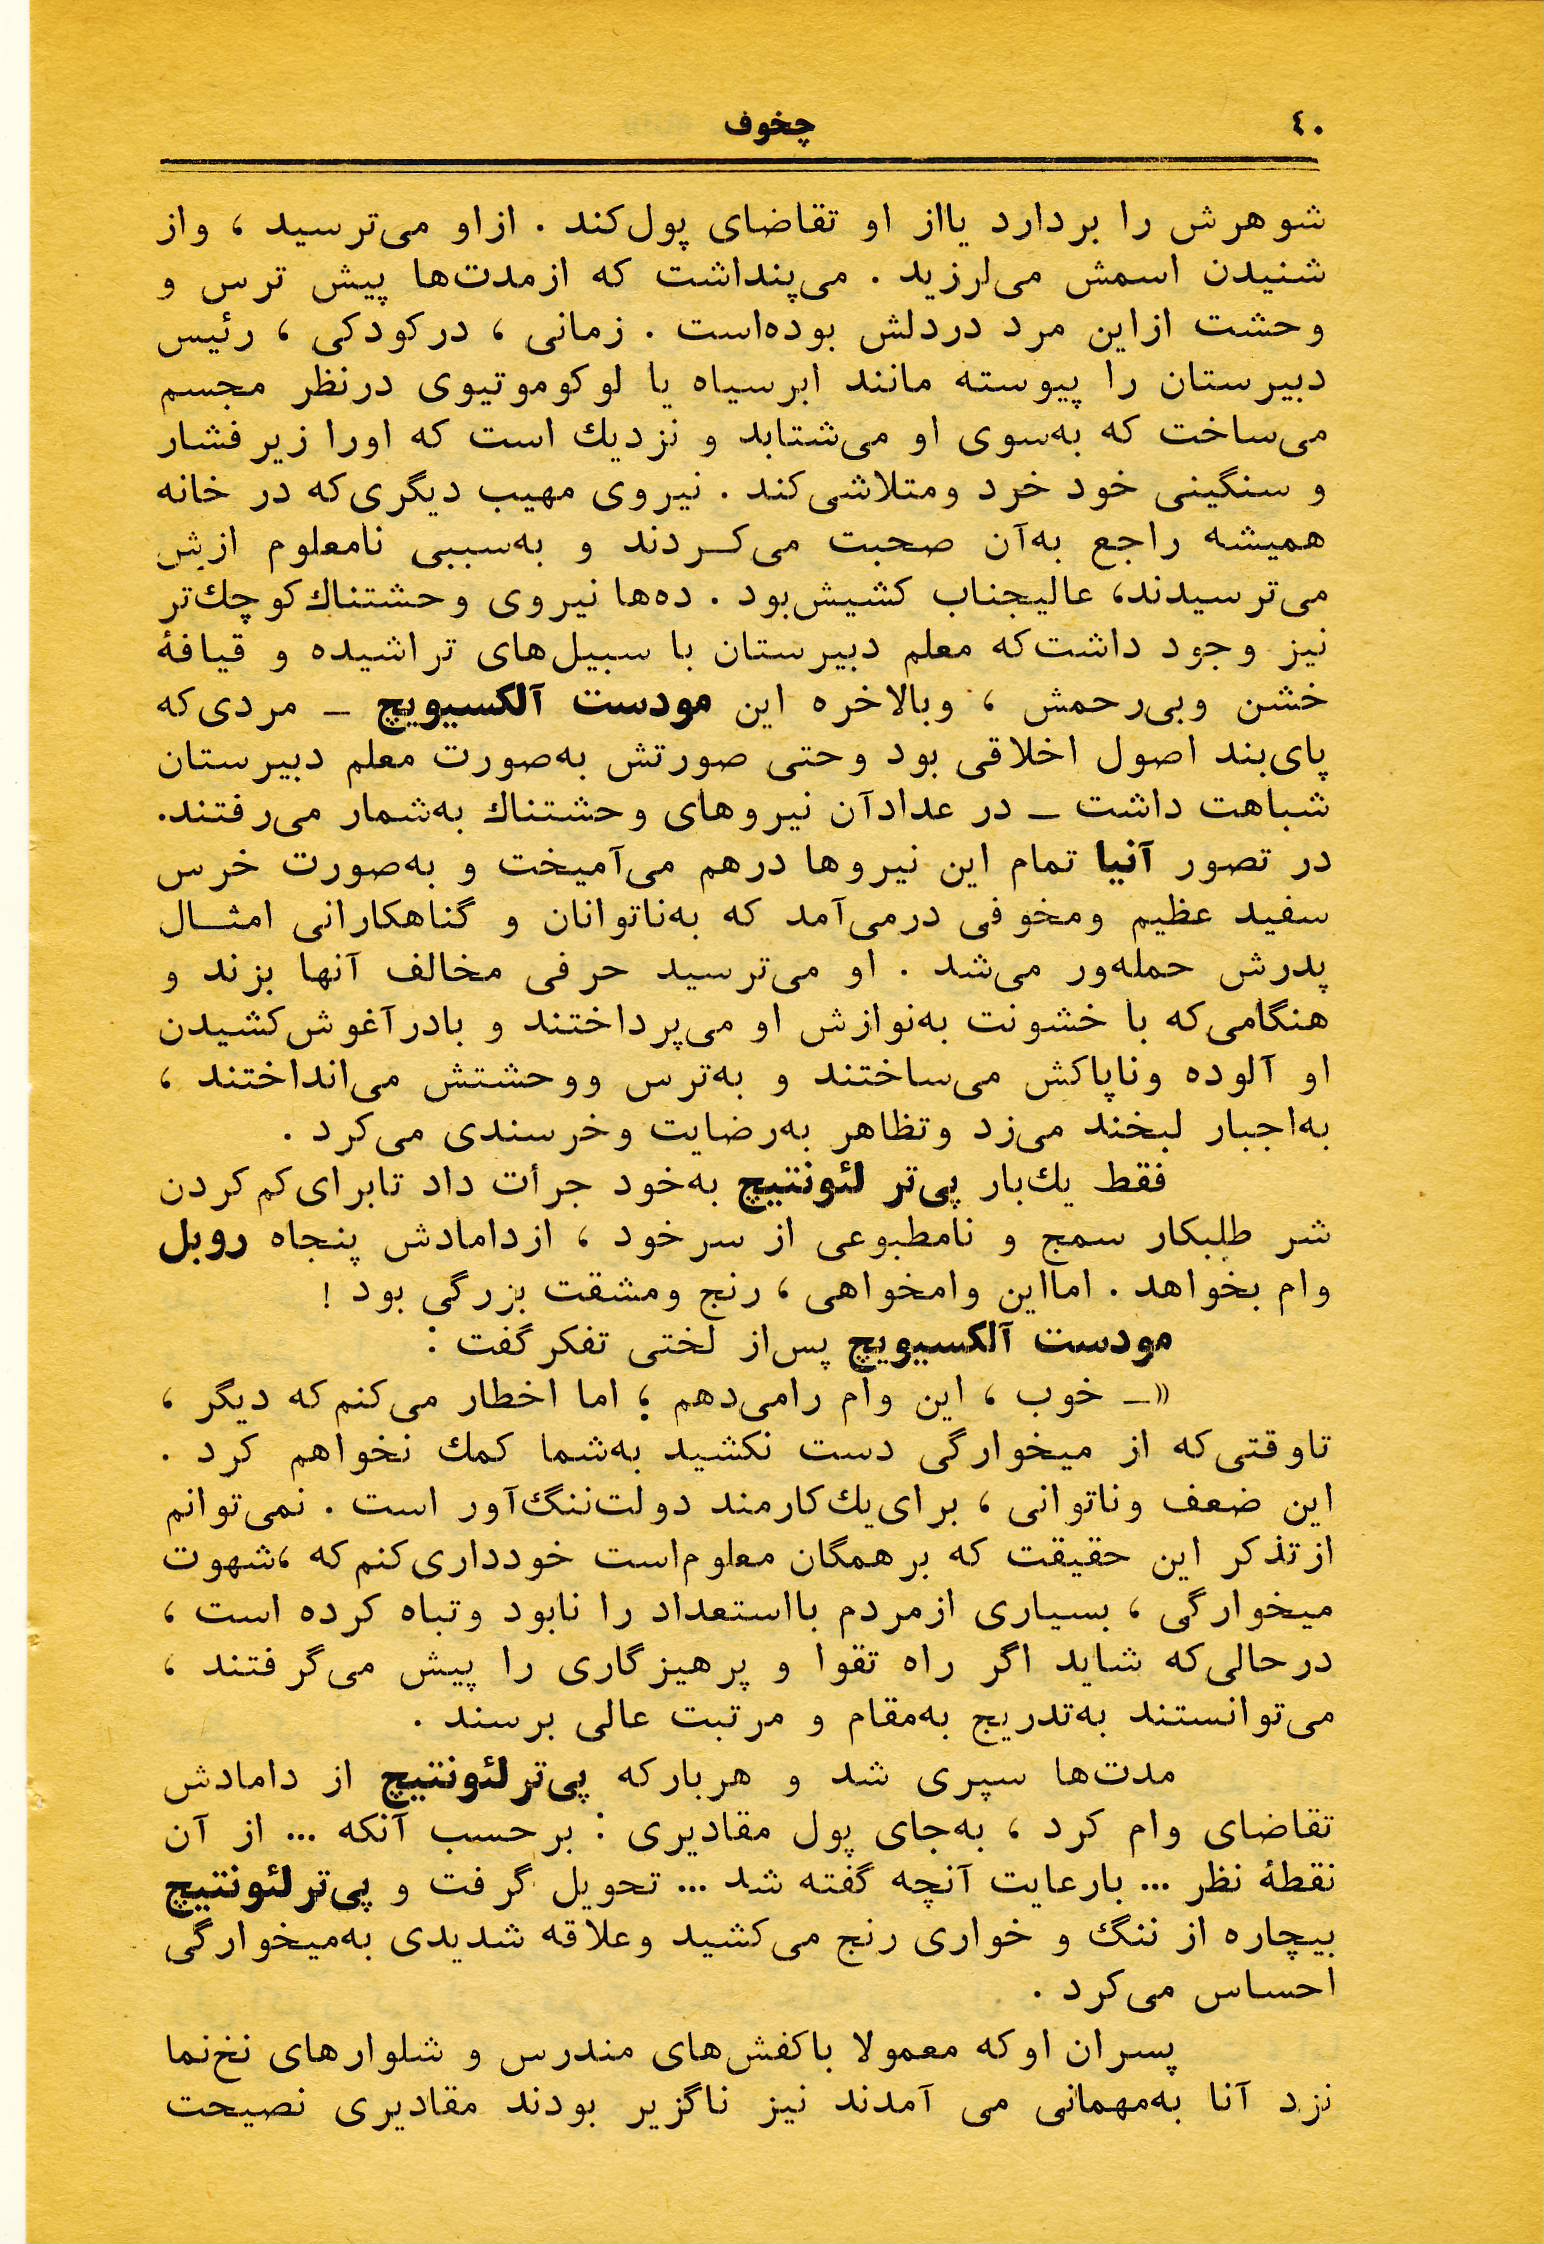 ۴۰
چخوف
شوهرش را بردارد یااز او تقاضای پول‌کند . ازاو می‌ترسید ، واز
شنیدن اسمش می‌لرزید . می‌پنداشت که ازمدت‌ها پیش ترس و
وحشت ازاین مرد دردلش بوده‌است . زمانی ، درکودکی ، رئیس
دبیرستان را پیوسته مانند ابرسیاه یا لوکوموتیوی درنظر مجسم
می‌ساخت که به‌سوی او می‌شتابد و نزدیك است که اورا زیرفشار
و سنگینی خود خرد ومتلاشی‌کند . نیروی مهیب دیگری‌که در خانه
همیشه راجع به‌آن صحبت می‌کـردند و به‌سببی نامعلوم ازش
می‌ترسیدند، عالیجناب کشیش‌بود . ده‌ها نیروی وحشتناك‌کوچك‌تر
نیز وجود داشت‌که معلم دبیرستان با سبیل‌های تراشیده و قیافهٔ
خشن وبی‌رحمش ، وبالاخره این مودست آلکسیویچ ـ مردی‌که
پای‌بند اصول اخلاقی بود وحتی صورتش به‌صورت معلم دبیرستان
شباهت داشت ـ در عدادآن نیروهای وحشتناك به‌شمار می‌رفتند.
در تصور آنیا تمام این نیروها درهم می‌آمیخت و به‌صورت خرس
سفید عظیم ومخوفی درمی‌آمد که به‌ناتوانان و گناهکارانی امثـال
پدرش حمله‌ور می‌شد . او می‌ترسید حرفی مخالف آنها بزند و
هنگامی‌که با خشونت به‌نوازش او می‌پرداختند و بادرآغوش‌کشیدن
او آلوده وناپاکش می‌ساختند و به‌ترس ووحشتش می‌انداختند ،
به‌اجبار لبخند می‌زد وتظاهر به‌رضایت وخرسندی می‌کرد .
فقط یك‌بار پی‌تر لئونتیچ به‌خود جرأت داد تابرای‌کم‌کردن
شر طلبکار سمج و نامطبوعی از سرخود ، ازدامادش پنجاه روبل
وام بخواهد . امااین وامخواهی ، رنج ومشقت بزرگی بود !
مودست آلکسیویچ پس‌از لختی تفکرگفت :
«ـ خوب ، این وام رامی‌دهم ؛ اما اخطار می‌کنم‌که دیگر ،
تاوقتی‌که از میخوارگی دست نکشید به‌شما کمك نخواهم کرد .
این ضعف وناتوانی ، برای‌یك‌کارمند دولت‌ننگ‌آور است . نمی‌توانم
ازتذکر این حقیقت که برهمگان معلوم‌است خودداری‌کنم‌که ،شهوت
میخوارگی ، بسیاری ازمردم بااستعداد را نابود وتباه کرده است ،
درحالی‌که شاید اگر راه تقوا و پرهیزگاری را پیش می‌گرفتند ،
می‌توانستند به‌تدریج به‌مقام و مرتبت عالی برسند .
مدت‌ها سپری شد و هربارکه پی‌ترلئونتیچ از دامادش
تقاضای وام کرد ، به‌جای پول مقادیری : برحسب آنکه ... از آن
نقطهٔ نظر ... بارعایت آنچه گفته شد ... تحویل گرفت و پی‌ترلئونتیچ
بیچاره از ننگ و خواری رنج می‌کشید وعلاقه شدیدی به‌میخوارگی
احساس می‌کرد .
پسران اوکه معمولا باکفش‌های مندرس و شلوارهای نخ‌نما
نزد آنا به‌مهمانی می آمدند نیز ناگزیر بودند مقادیری نصیحت